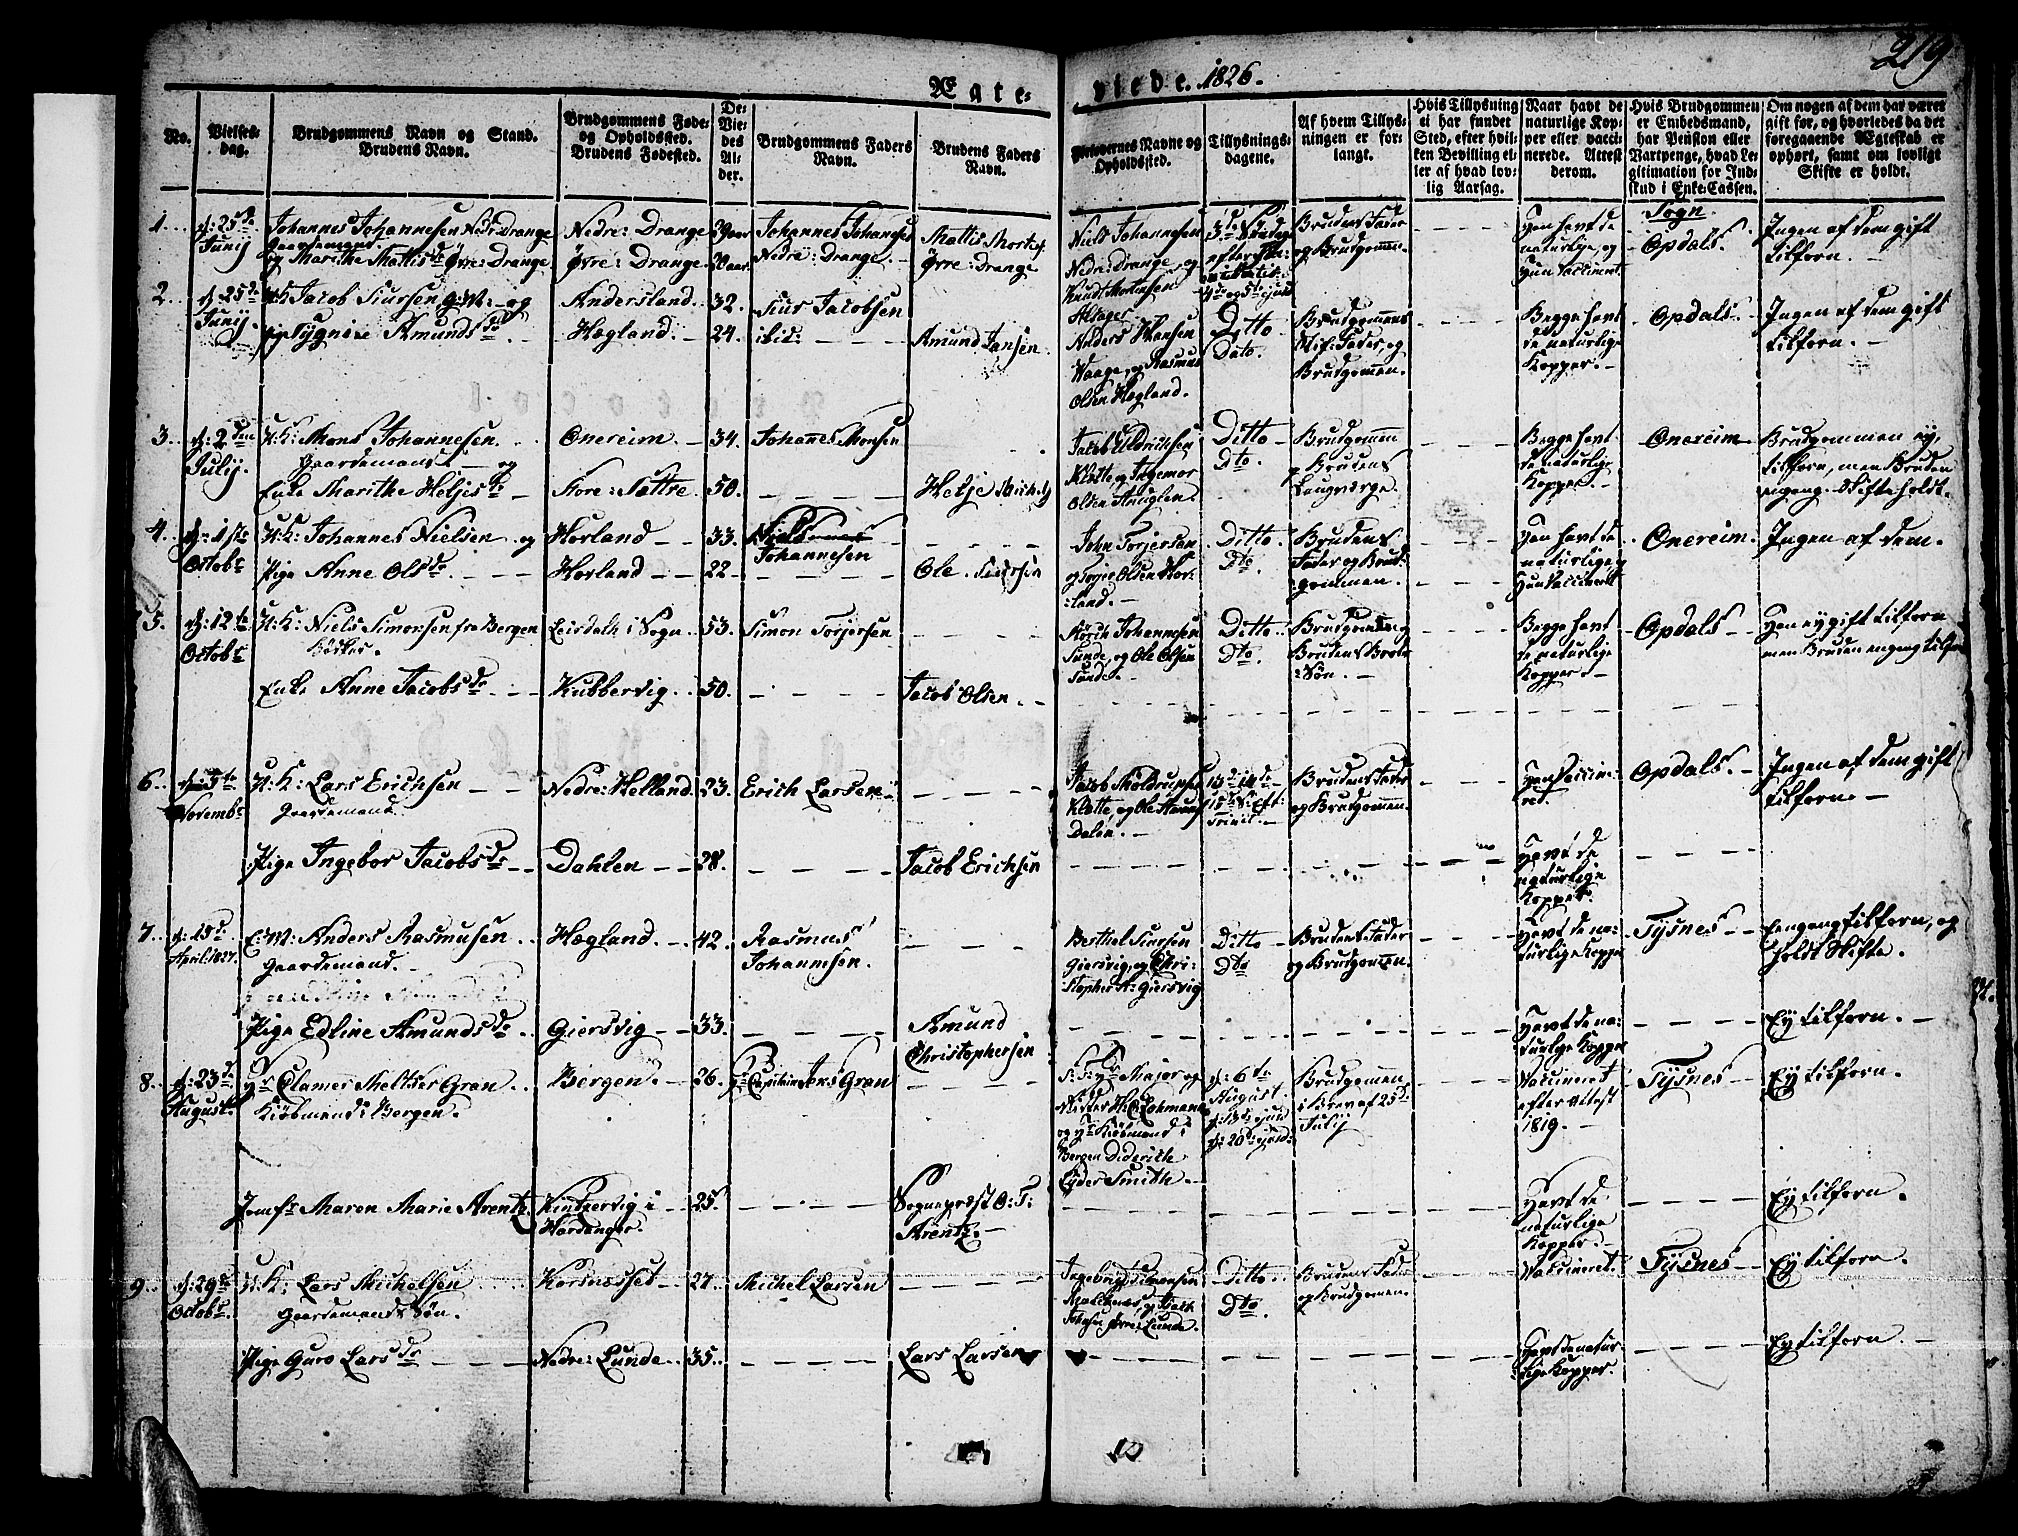 219
Ægte-
viede. 1826.
No.
Vielses-
dag.
Brudgommens Navn og Stand.
Brudens Navn.
Brudgommens Føde-
og Opholdssted.
Brudens Fødested.
De-
Vie-
des
Al-
der.
Brudgommens Faders
Navn.
Brudens Faders
Navn.
Forlovernes Navne og
Opholdssted.
Tillysnings-
dagene.
Af hvem Tillys-
ningen er for-
langt.
Hvis Tillysning
ei har fundet
Sted, efter hvil-
ken Bevilling el-
ler af hvad lov-
lig Aarsag.
Naar havt de
naturlige Kop-
per eller vacci-
nerede. Attest
derom.
Hvis Brudgommen
er Embedsmand,
har Pension eller
Vartpenge, hvad Le-
gitimation for Ind-
skud i Enke-Cassen.
Om nogen af dem har været
gift før, og hvorledes da det
foregaaende Ægteskab er
ophørt, samt om lovligt
Skifte er holdt.
1.
d: 25de
Junij
Johannes Johannesen Nedr: Drange
Gaardemand.
og Marithe Mattisdr Øvre: Drange
Nedre: Drange
Øvre: Drange
29 aar
20 aar.
Johannes Johanes
Nedre: Drange
Mattis Mortis
Øvre: Drange
Niels Johannesen
Nedre: Drange, og
Knud Mortensen
Brudens Fader
og Brudgommen.
Han havt de
naturlige, og
Hun Vaccineret.
Sogn
Opdals.
Ingen af dem gift
tilforn.
2.
d: 25de
Junij.
Jacob Siursen og
Pige Sygnive Amundsdr
Andersland
Hægland.
32.
24.
Siur Jacobsen
ibid:
Amund Jansen
Anders Hansen
Waage, og Rasmus
Olsen Hægland.
Ditto
Dato.
Brudgommens
Stif: Fader, og
Brudgommen.
Begge havt
de naturlige
Kopper.
Opdals.
Ingen af dem gift
tilforn.
3.
d: 2den
Julij.
U: K: Mons Johannesen.
Gaardemand og
Enke Marithe Heljesdr
Onereim.
Store: Sættre
34.
50.
Johanes Monsen
Helje Michels
Klette, og Ingemor
Olsen
Ditto
Dto.
Brudgommen
og Brudens
Laugværge.
Begge havt
de naturlige
Kopper.
Onereim
Brudgommen ey,
tilforn, men Bruden
engang. Skifte holdt.
4.
d: 1ste
Octobr
U: K: Johannes Nielsen og
Pige Anne Olsdr
Horland
Horland
33.
22
Niels
Johannesen
Ole Siursen
John Torjersen
og Torjer Olsen Hor-
land.
Ditto.
Dto.
Brudens
Fader og Brud-
gommen.
Han havt de
naturlige, og
Hun Vaccineret
Onereim.
Ingen af dem.
5.
d: 12te
Octobr
U: K: Niels Simonsen fra Bergen
Enke Anne Jacobsdr
Leirdals i Sogn
Kubbervig.
53.
50.
Simon Torjersen
Jacob Olsen
Johannesen
Sunde, og Ole Olsen
Sunde.
Ditto.
Dto.
Brudgommen og
Brudens Broder
Søn.
Begge havt
de naturlige
Kopper.
Opdals
Han ey gift tilforn
men Bruden engang tilforn
6.
d: 5te
Novembr
U: K: Lars Erichsen
Gaardemand.
Pige Ingebor Jacobsdr
Nedre: Helland.
Dahlen
23.
28.
Erich Larsen
Jacob Erichsen
Klette, og Ole
Dalen.
13de 14de
15de S: eft:
Trinit.
Brudens Fader
og Brudgommen.
Han Vaccine-
ret.
Havt de
naturlige
Kopper.
Opdals.
Ingen af dem gift
tilforn.
7.
d: 15de
April 1827.
E: M: Anders Rasmusen
Gaardemand.
Pige Edline Amundsdr
Hægland.
Giersvig
42.
33.
Rasmus
Johannesen.
Amund
Christophersen
Berthel Siursen
Giersvig, og Chri-
stopher A: Giersvig
Ditto
Dto
Brudens Fader
og Brudgommen.
Havt de na-
turlige Kopper
Havt de na-
turlige Kopper
Tysnes
Engang tilforn, og
holdt Skifte.
Ey tilforn.
8.
d: 23de
August.
Hr Clamer Meltzer Gran.
Kiøbmand i Bergen.
Jomfr Maren Marie Arentz.
Bergen.
Kintzervig i
Hardanger.
26.
25.
Hr Capitain Jens Gran
Sogneprest O: T:
Arentz.
S: T: Hr Major og
Ridder H: C: Lohmann
og Hr Kiøbmand i
Bergen Dideriche
Eyder Smith.
d: 6te
August
d: 13de ejusd
d: 20de ejusd:
Brudgommen
i Brev af 25de
Julij
Vaccineret
efter Attest
1819.
Havt de
naturlige
Kopper.
Tysnes
Ey tilforn.
Ey tilforn.
9.
d: 29de
Octobr.
U: K: Lars Michelsen
Gaardemands Søn.
Pige Guro Larsdr
Korsnesset
Nedre: Lunde
27.
35.
Michel Larsen
Lars Larsen
Øvre: Lunde.
Ditto
Dto.
Brudens Fader
og Brudgommen.
Vaccineret.
Havt de natur-
lige Kopper.
Tysnes
Ey tilforn.
Ey tilforn.